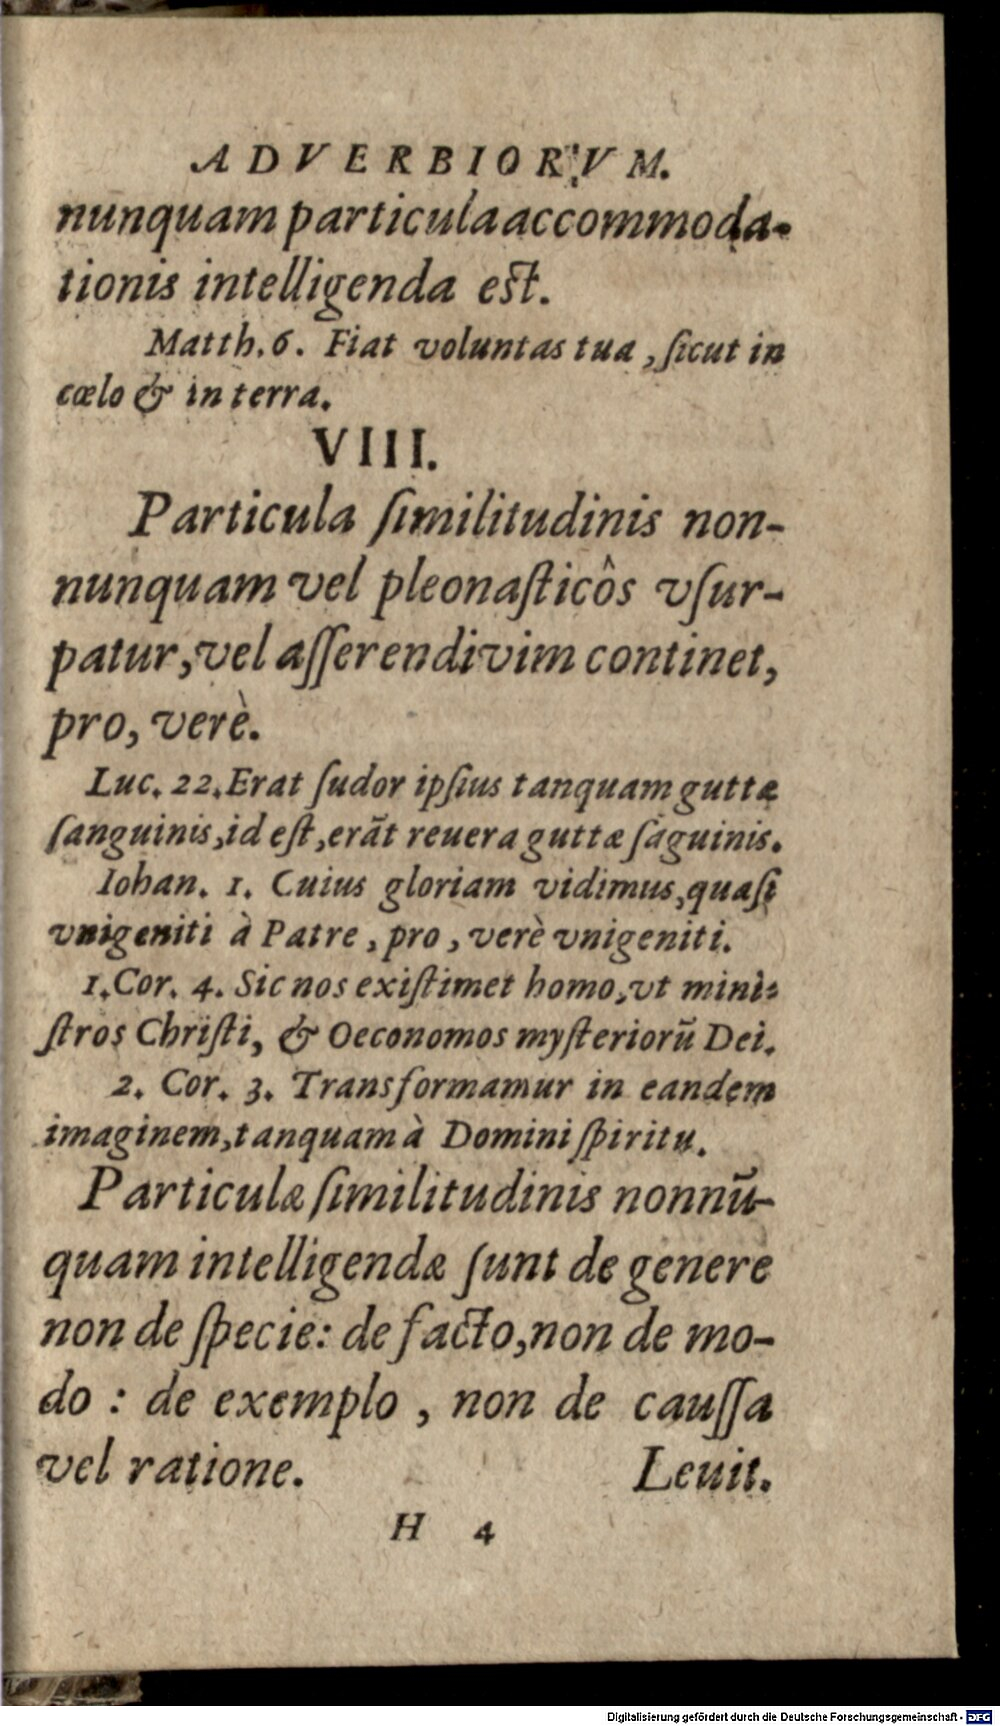 ADVERBIORVM.
nunquam particula accommoda-
tionis intelligenda est.
Matth. 6. Fiat voluntas tua, ſicut in
cœlo & in terra.
VIII.
Particula ſimilitudinis non-
nunquam vel pleonaſticôs vſur-
patur, vel aſſerendi vim continet,
pro, verè.
Luc. 22. Erat ſudor ipſius tanquam guttæ
ſanguinis, id eſt, erāt reuera guttæ ſāguinis.
Iohan. 1. Cuius gloriam vidimus, quaſi
vnigeniti à Patre, pro, verè vnigeniti.
1. Cor. 4. Sic nos exiſtimet homo, vt mini-
ſtros Chriſti, & Oeconomos myſteriorū Dei.
2. Cor. 3. Transformamur in eandem
imaginem, tanquam à Domini ſpiritu.
Particulæ ſimilitudinis nonnū-
quam intelligendæ ſunt de genere
non de ſpecie: de facto, non de mo-
do : de exemplo, non de cauſſa
vel ratione. Leuit.
H 4
Digitalisierung gefördert durch die Deutsche Forschungsgemeinschaft - DFG